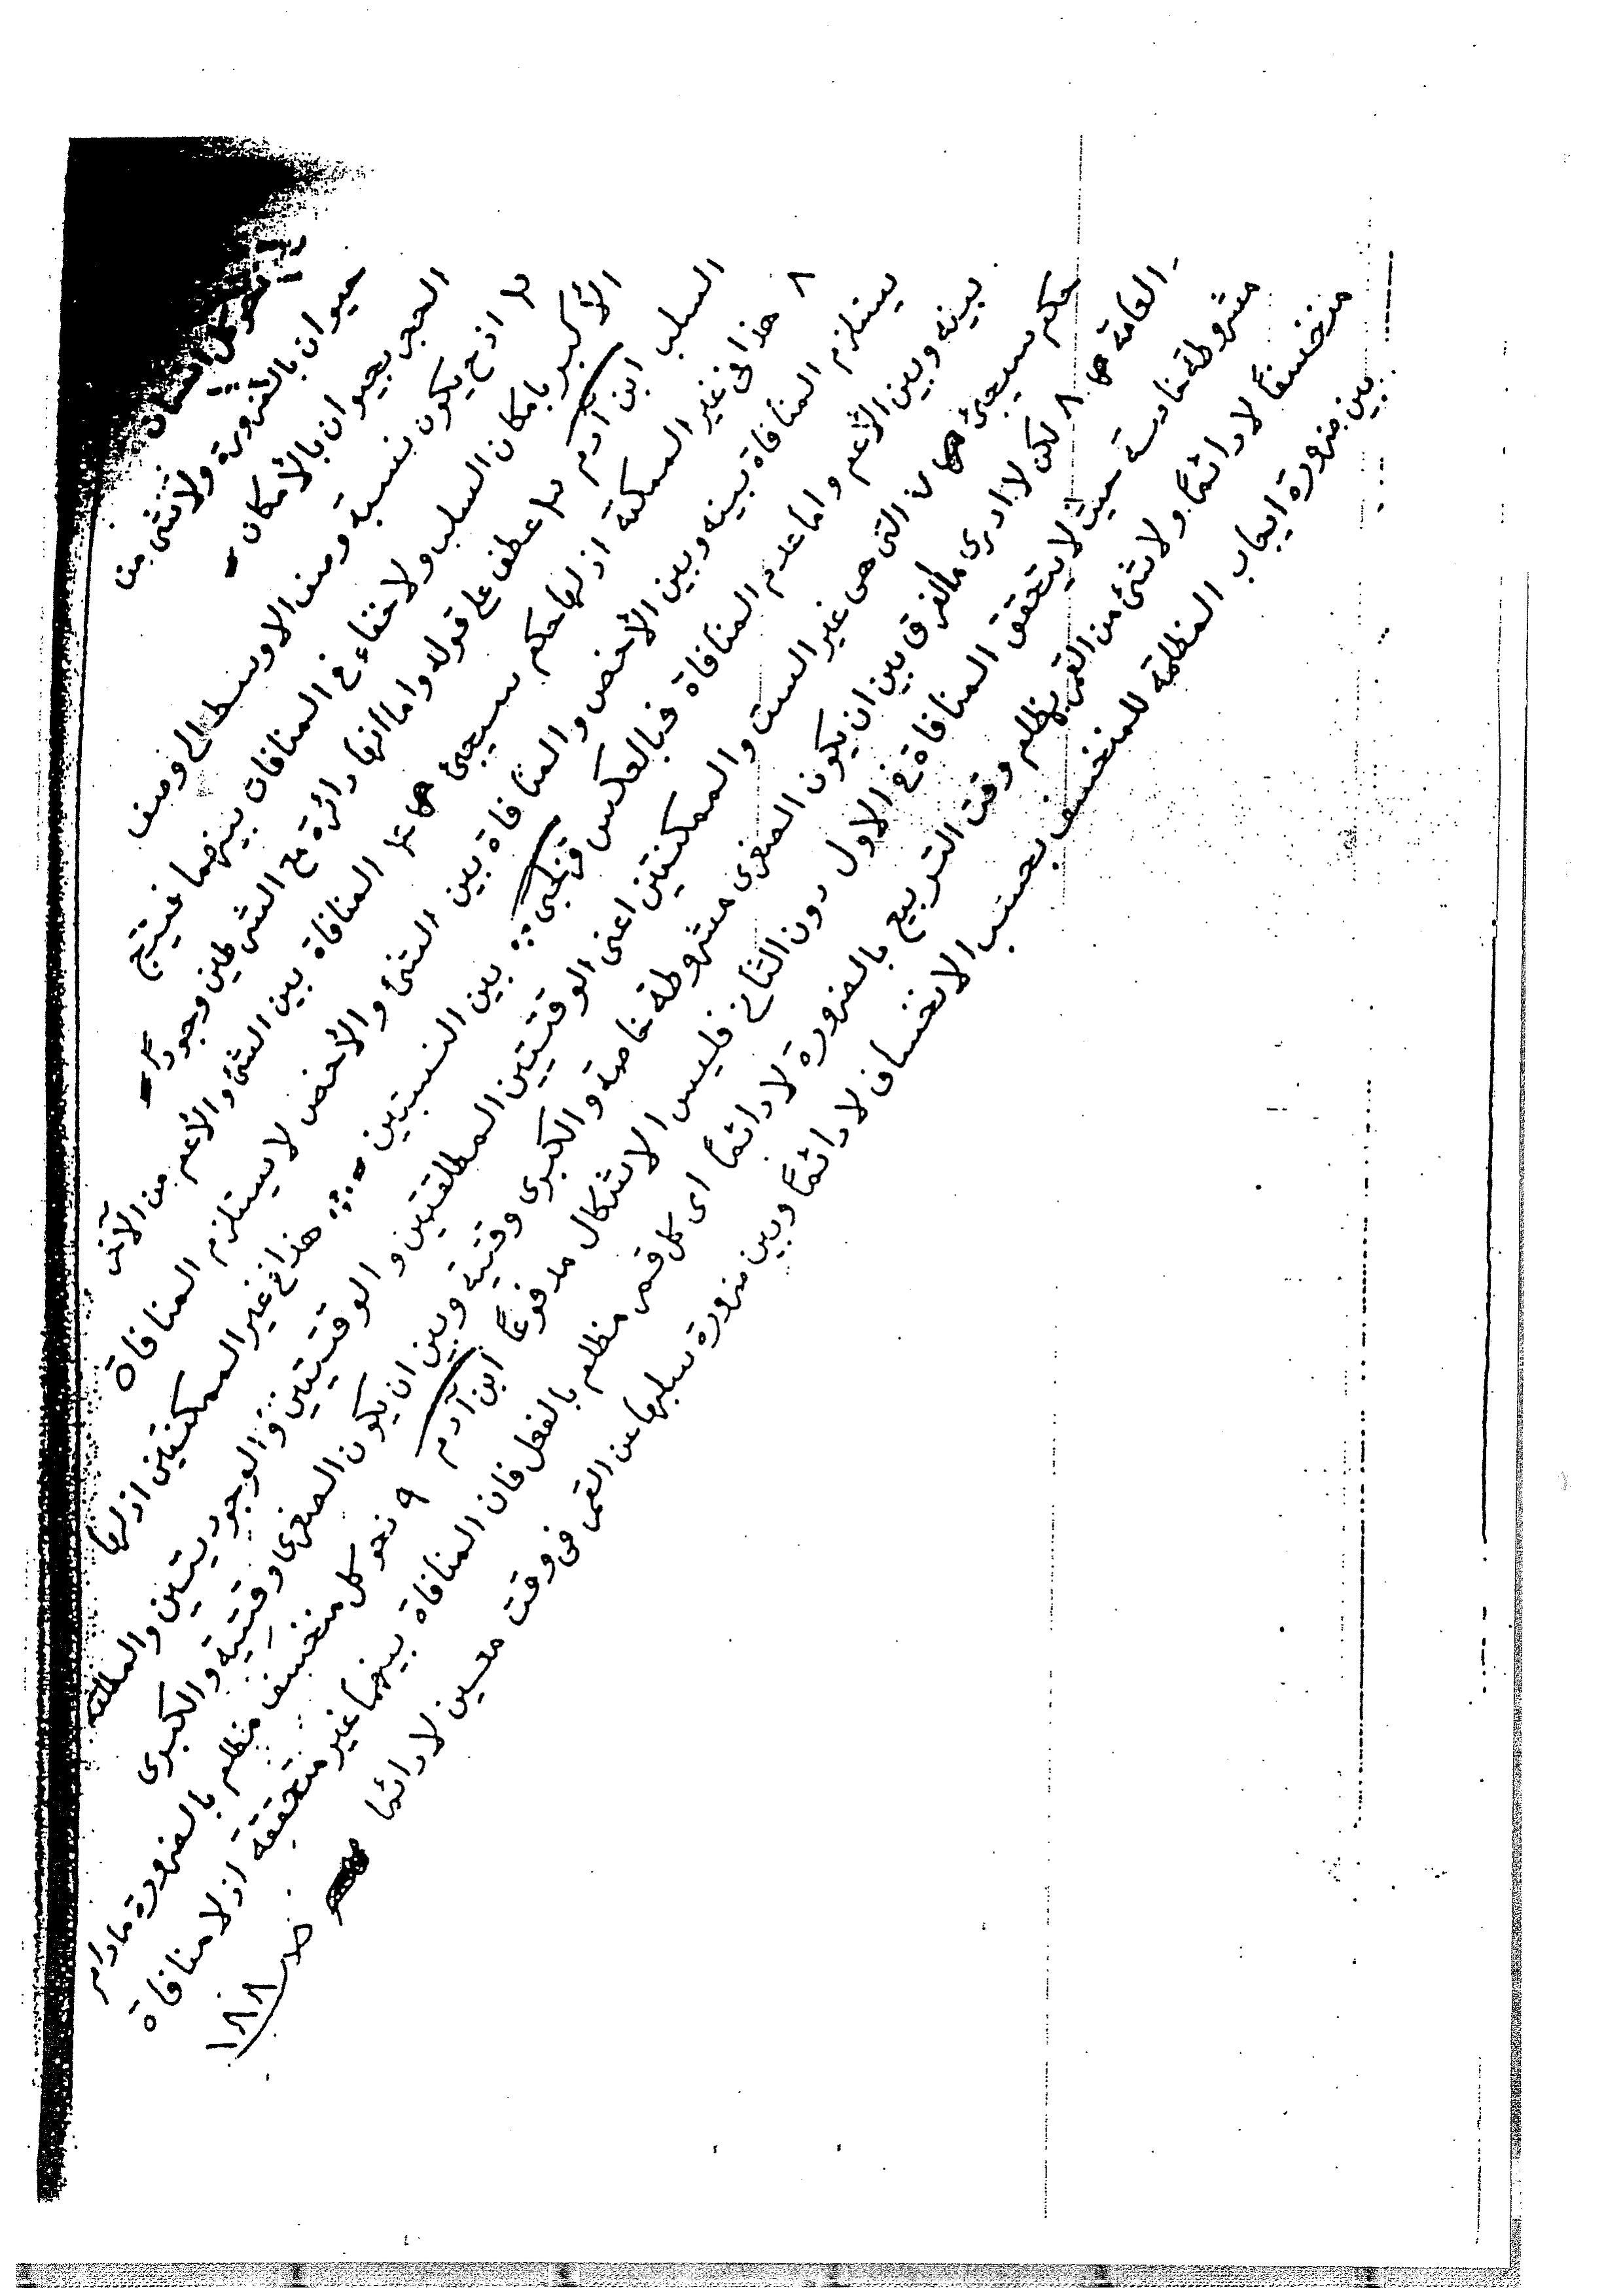 نحو كل انسان
حيوان بالضرورة ولا شئ من
الحجر بحيوان بالأمكان
اذ ح يكون نسبة وصف الاوسط الى وصف
الأكبر بامكان السلب ولا خفاء في المنافات بينهما فينتج
السلب ابن آدم عطف على قوله واما أنها دائرة مع الشرطين وجوداً
٨ هذا فى غير الممكنة اذ لها حكم سيجئ المنافاة بين الشئ والأعم من الآخر
يستلزم المنافاة بينه وبين الأخص والمنافاة بين الشئ والأخص لا يستلزم المنافاة
بينه وبين الأعم واما عدم المنافاة فبالعكس قزلجى بين النسبتين هذا فى غير الممكنتين اذ لها
حكم سيجئ التى هى غير الست والممكنتين اعنى الوقتيتين المطلقتين و الوقتيتين والوجوديتين والمطلقة
العامة ٨ لكن لا ادرى ما الفرق بين ان يكون الصغرى مشروطة خاصة والكبرى وقتية وبين ان يكون الصغرى وقتية والكبرى
مشروطة خاصة حيث لا يتحقق المنافاة فى الاول دون الثانى فليس الاشكال مدفوعاً ابن آدم ٩ نحو كل منخسف مظلم بالضرورة مادام
منخسفاً لا دائماً ولا شئ من القمر بمظلم وقت التربيع بالضرورة لا دائماً اى كل قمر مظلم بالفعل فان المنافاة بينهما غير متحققة اذ لا منافاة
بين ضرورة ايجاب المظلمة للمنخسف بحسب الانخساف لا دائماً وبين ضرورة سلبها عن القمر فى وقت معين لا دائما
١٨٨